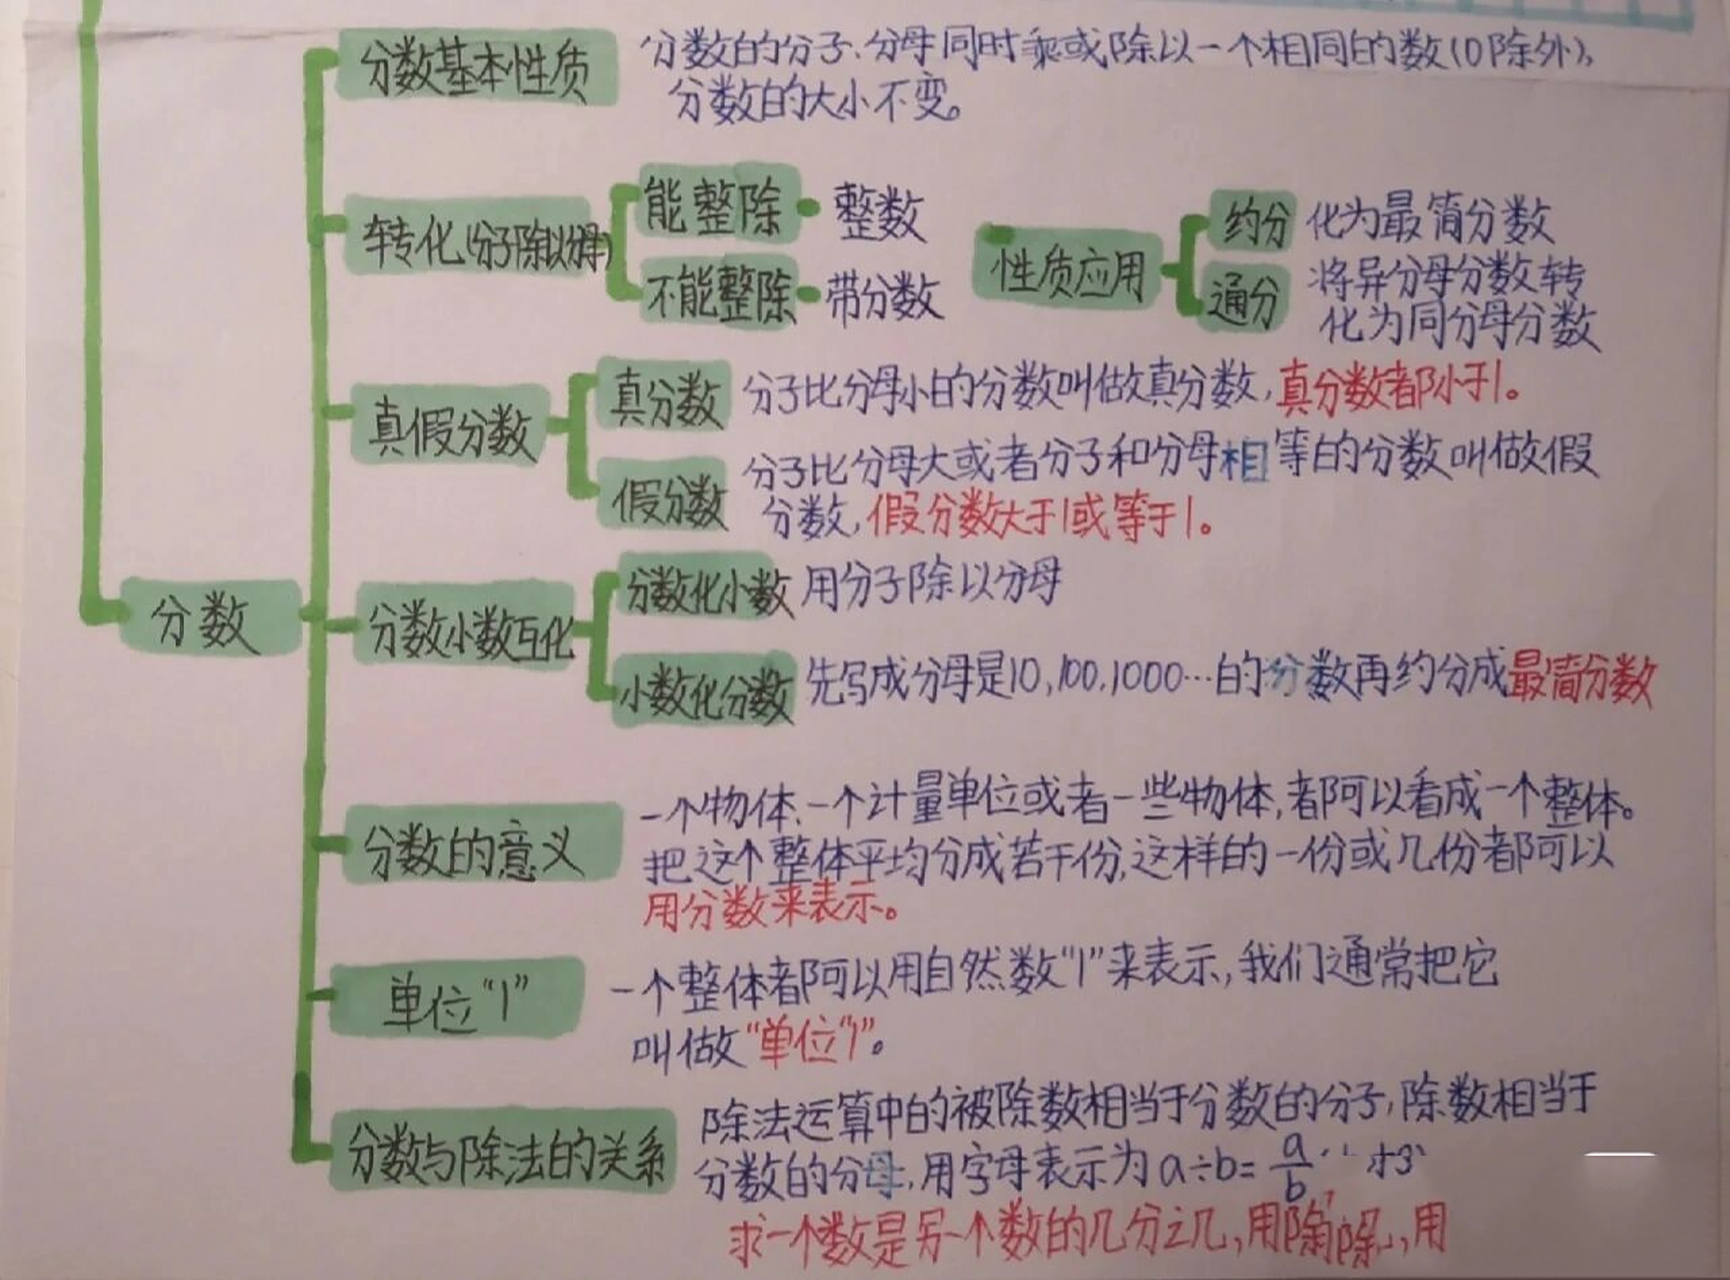 分数基本性质
分数的分子、分母同时乘或除以一个相同的数(0除外),
分数的大小不变。
转化(分子除以分母)
能整除
整数
不能整除
带分数
性质应用
约分
化为最简分数
通分
将异分母分数转
化为同分母分数
真假分数
真分数
分子比分母小的分数叫做真分数,真分数都小于1。
假分数
分子比分母大或者分子和分母相等的分数叫做假
分数,假分数大于1或等于1。
分数
分数小数互化
分数化小数
用分子除以分母
小数化分数
先写成分母是10,100,1000…的分数再约分成最简分数
分数的意义
一个物体、一个计量单位或者一些物体,都可以看成一个整体。
把这个整体平均分成若干份,这样的一份或几份都可以
用分数来表示。
单位“1”
一个整体都可以用自然数“1”来表示,我们通常把它
叫做“单位“1”。
分数与除法的关系
除法运算中的被除数相当于分数的分子,除数相当于
分数的分母,用字母表示为a÷b=a/b
求一个数是另一个数的几分之几,用除 用